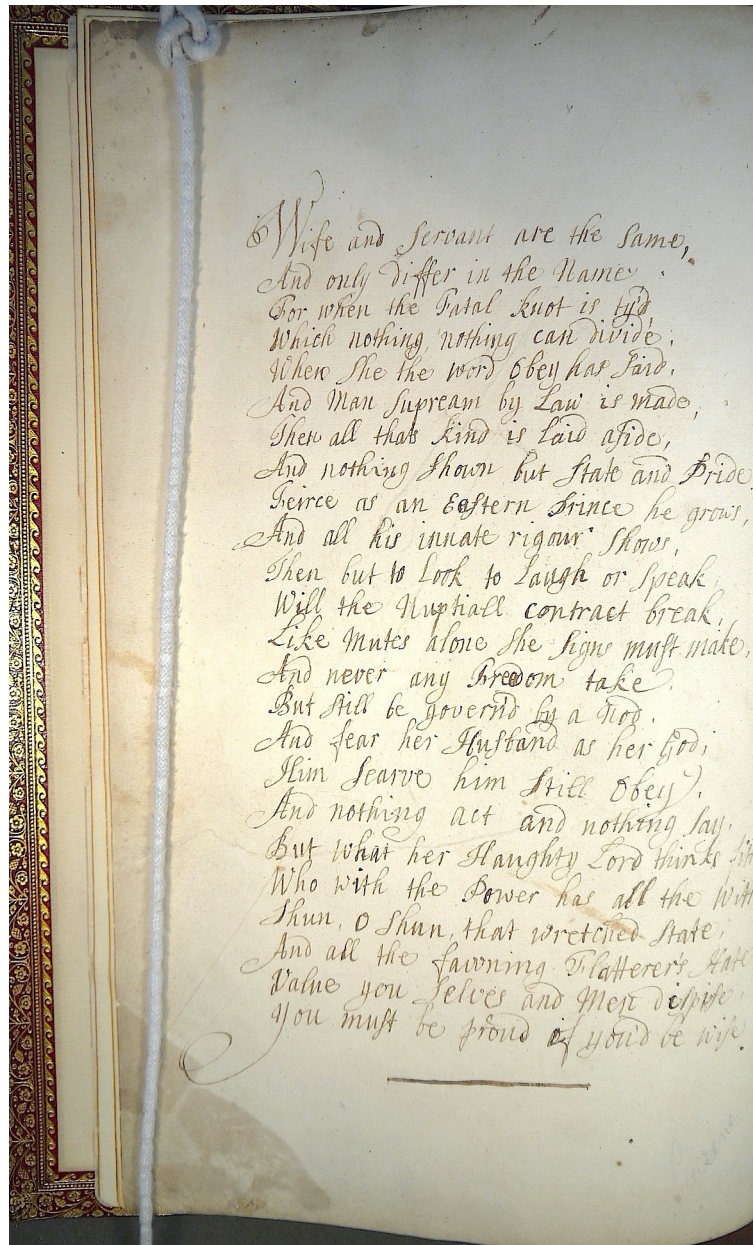 Wife and Servant are the Same,
And only differ in the Name.
For when the Fatal knot is ty'd
Which nothing nothing can divide.
When She the word Obey has Said,
And Man Supream by Law is made,
Then all that's Kind is laid aside,
And nothing Shown but State and Pride
Feirce as an Eastern Prince he grows,
And all his innate rigour Shows,
Then but to Look to Laugh or Speak
Will the Nuptiall contract break,
Like Mutes alone She Signs must make,
And never any Freedom take.
But Still be govern'd by a Nod.
And fear her Husband as her God;
Him Searve him Still Obey
And nothing act and nothing Say.
But what her Haughty Lord thinks
Who with the Power has all the Witt
Shun, O Shun, that wretched State,
And all the fawning Flatterer's Hate
Value you Selves and Men dispise
You must be proud if you'd be wise.